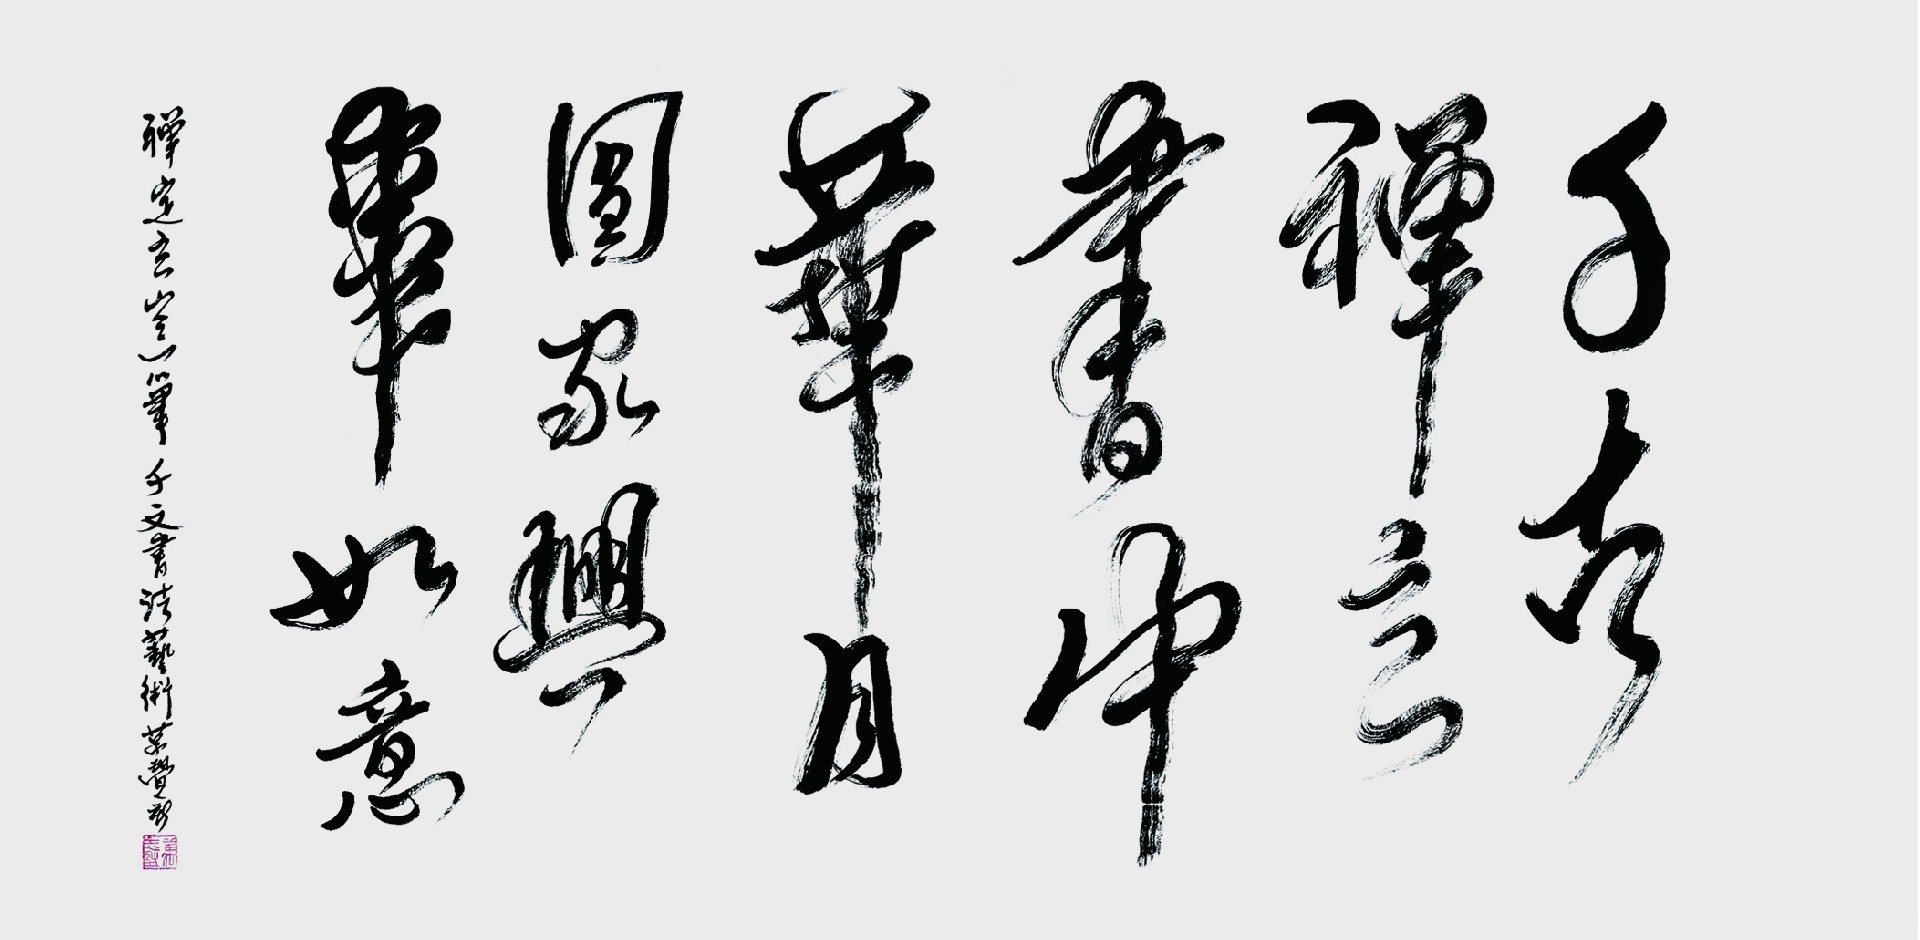 千古
禪言
書中
華月
圓家興
事如意
禪定筆千文書法藝術